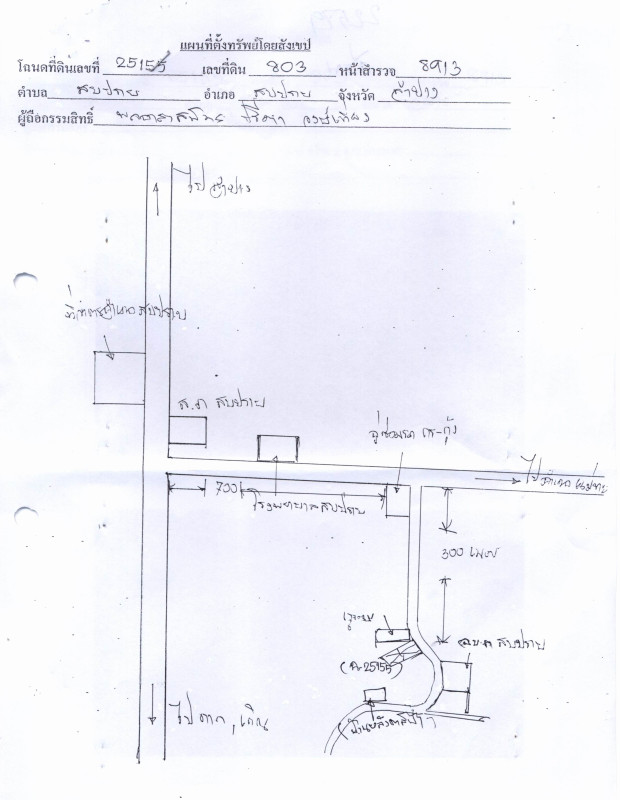 แผนที่ตั้งทรัพย์โดยสังเขป
โฉนดที่ดินเลขที่ 25155 เลขที่ดิน 803 หน้าสำรวจ 8913
ตำบล สบปราบ อำเภอ สบปราบ จังหวัด ลำปาง
ผู้ถือกรรมสิทธิ์
ไป ลำปาง
ที่ว่าการอำเภอ สบปราบ
ส.ภ สบปราบ
อู่ซ่อมรถ
700
โรงพยาบาลสบปราบ
300 เมตร
อบต สบปราบ
(ฉ.25155)
ไป ตาก, เถิน